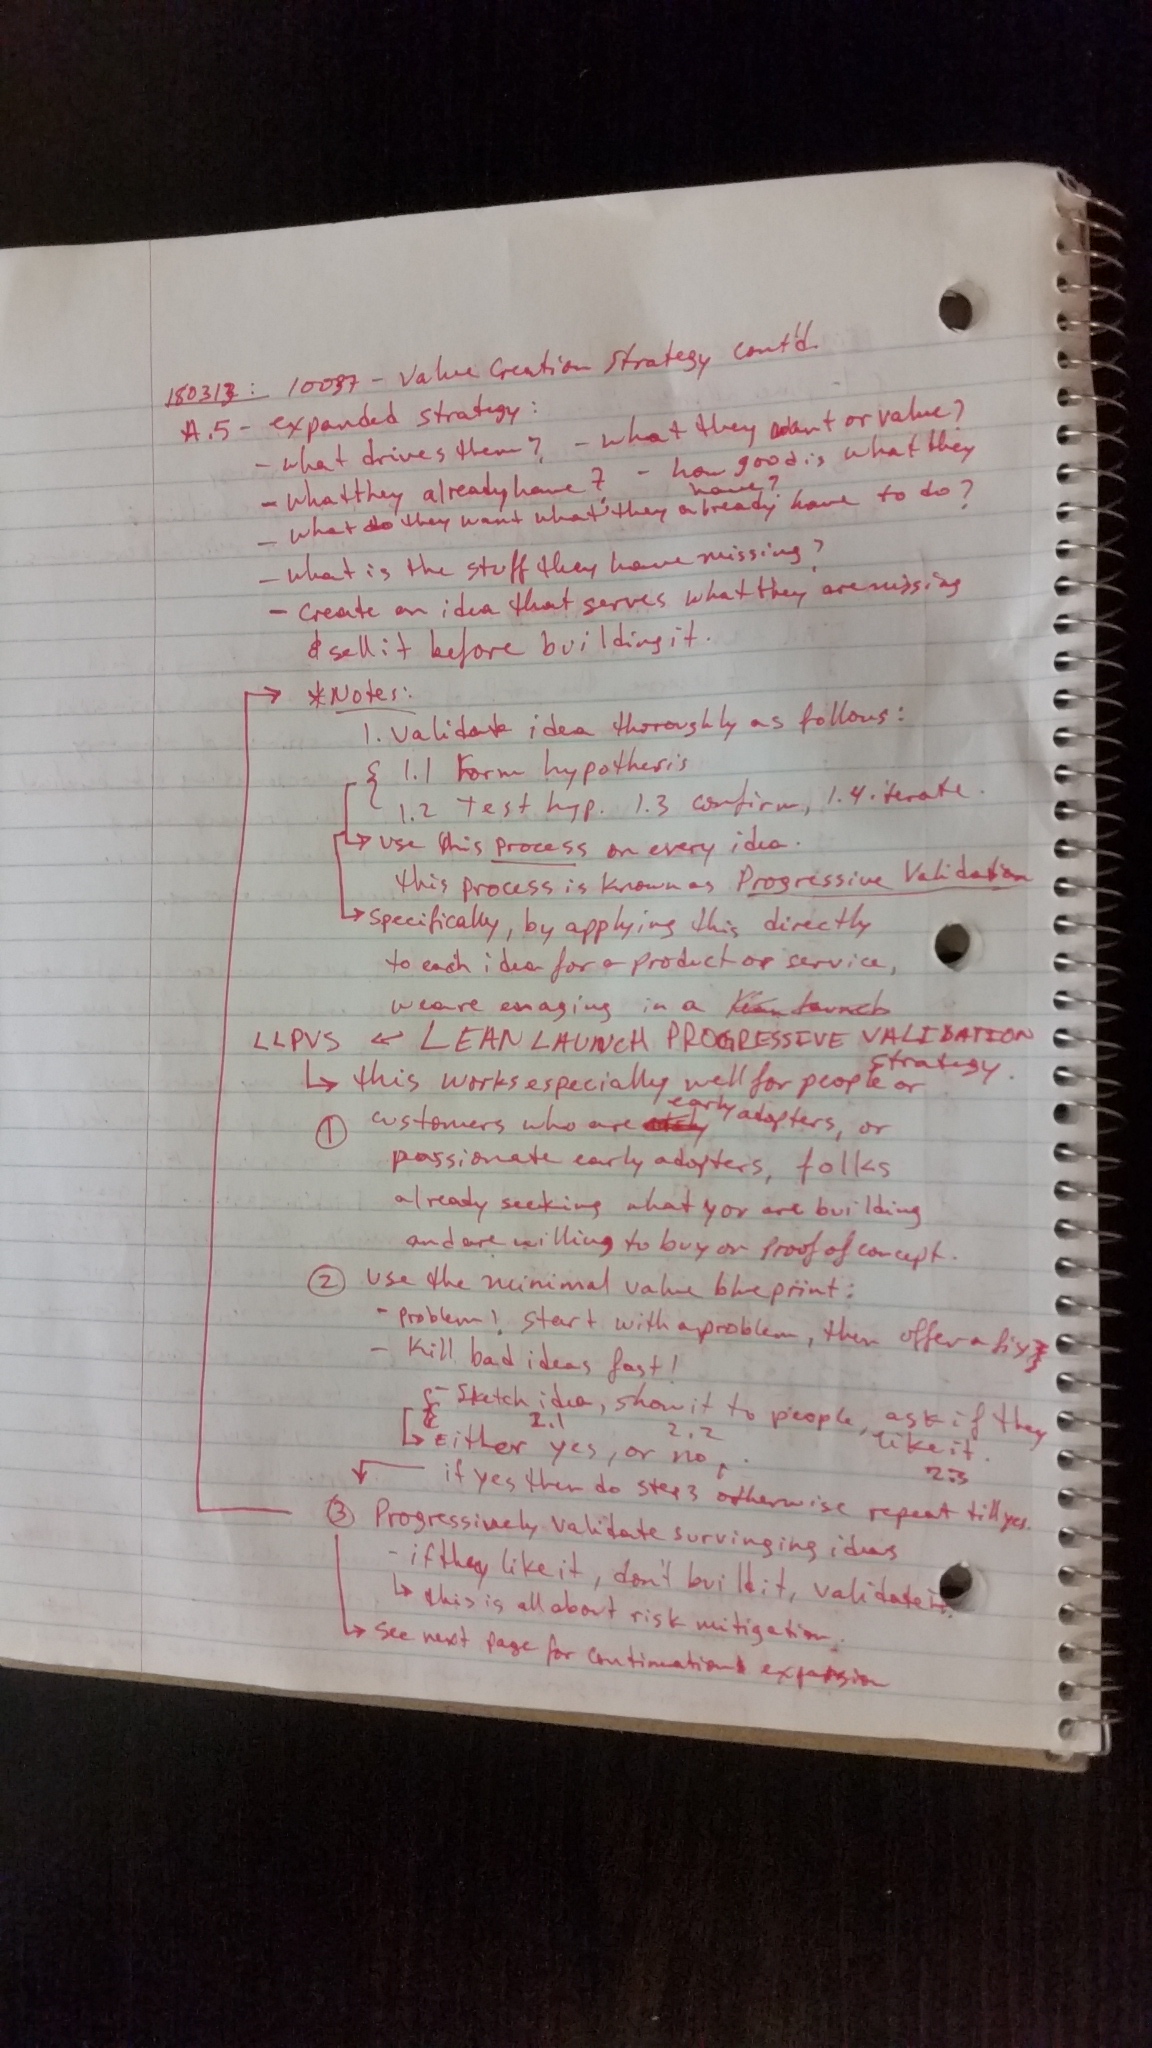 180313: 10037 - Value Creation Strategy cont'd.
A.5 - expanded strategy:
- what drives them? - what they want or value?
- what they already have? - how good is what they have?
- what do they want what they already have to do?
- what is the stuff they have missing?
- create an idea that serves what they are missing
& sell it before building it.
* Notes:
1. Validate idea thoroughly as follows:
1.1 Form hypothesis
1.2 Test hyp. 1.3 confirm, 1.4 iterate.
↳ use this process on every idea.
this process is known as Progressive Validation
↳ Specifically, by applying this directly
to each idea for a product or service,
we are enaging in a Lean Launch
LLPVS ← LEAN LAUNCH PROGRESSIVE VALIDATION
strategy.
↳ this works especially well for people or
① customers who are early adopters, or
passionate early adopters, folks
already seeking what you are building
and are willing to buy on proof of concept.
② use the minimal value blueprint:
- problem! start with a problem, then offer a fix
- Kill bad ideas fast!
- Sketch idea, show it to people, ask if they
like it.
2.1 2.2 2.3
↳ Either yes, or no,
if yes then do step 3 otherwise repeat till yes.
③ Progressively validate survinging ideas
- if they like it, don't build it, validate it.
↳ this is all about risk mitigation.
↳ see next page for continuation expansion